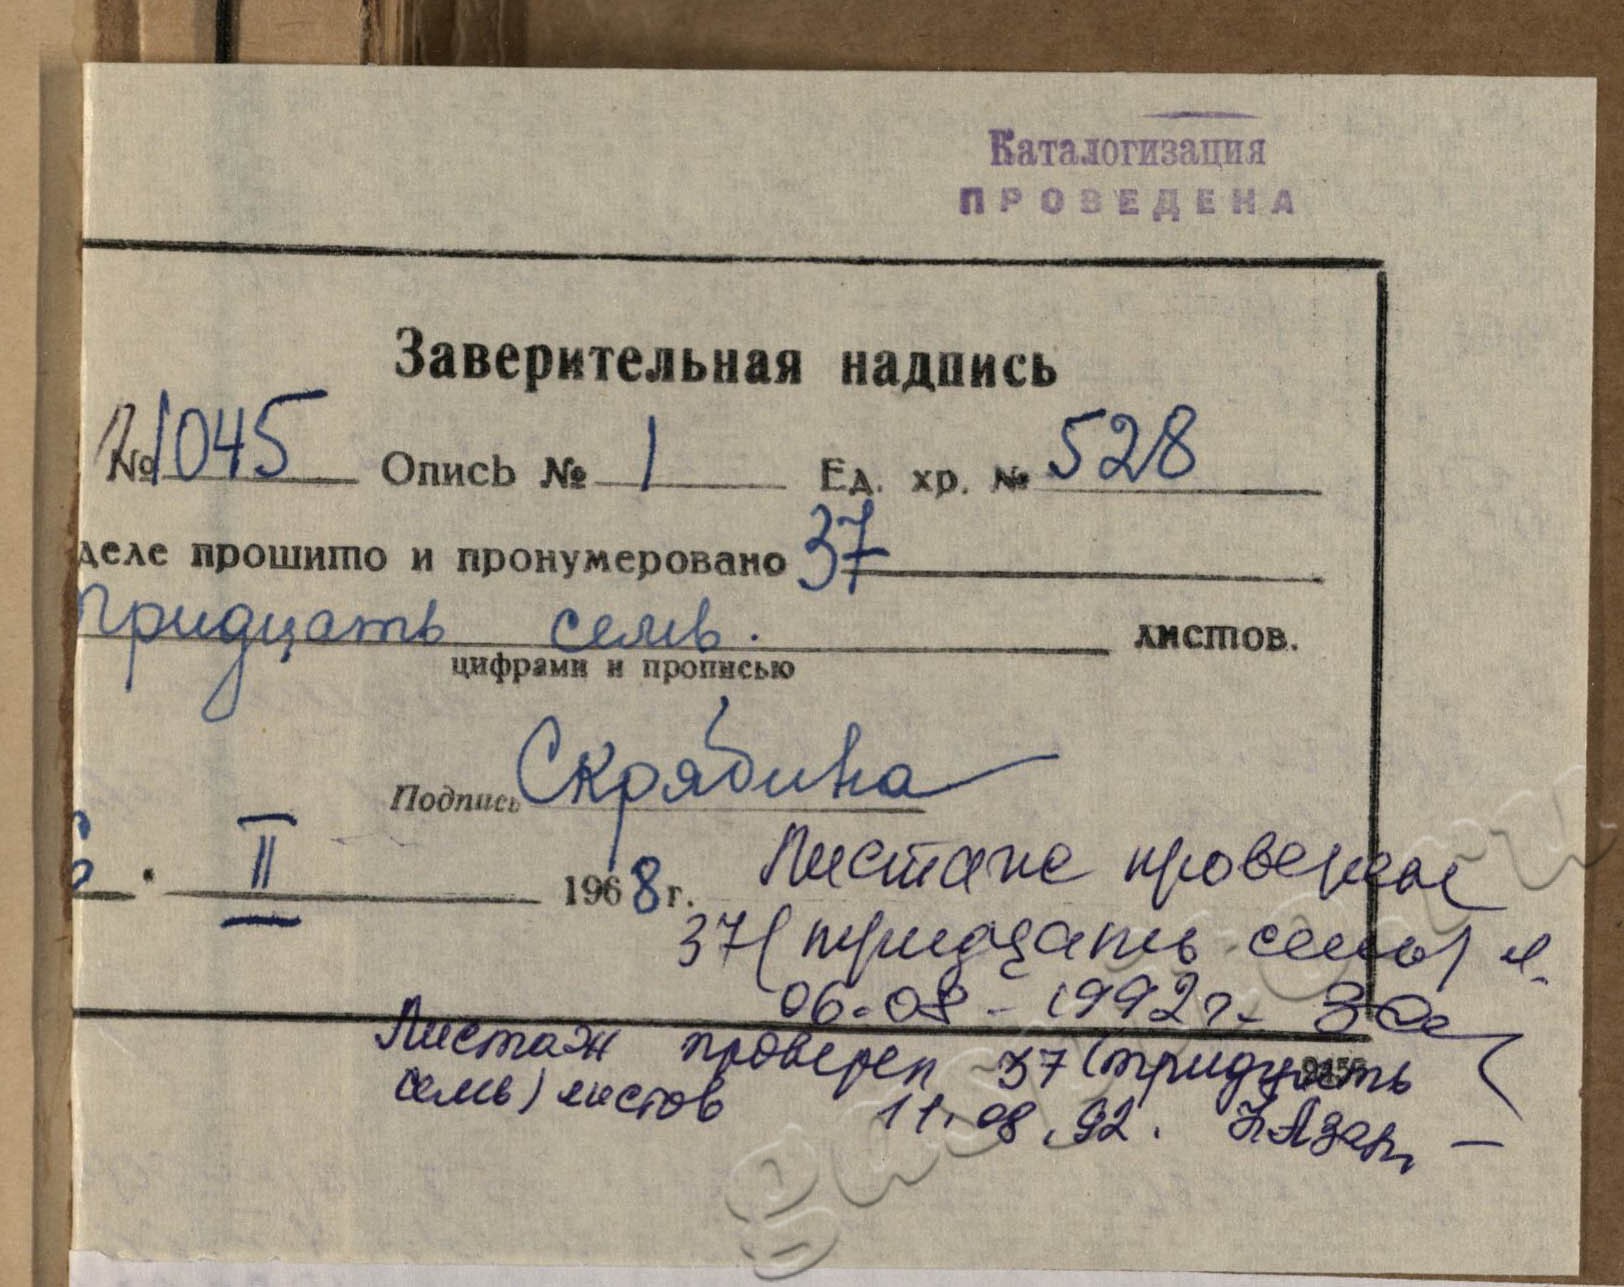 Каталогизация
ПРОВЕДЕНА
Заверительная надпись
№ 1045 Опись № 1 Ед. хр. № 528
деле прошито и пронумеровано 37
Тридцать семь. листов.
цифрами и прописью
Подпись Скрябина
6. II 1968 г.
Листаж проверен
37 (тридцать семь) л.
06-08-1992г.
Листаж проверен 37 (тридцать
семь) листов 11.08.92.